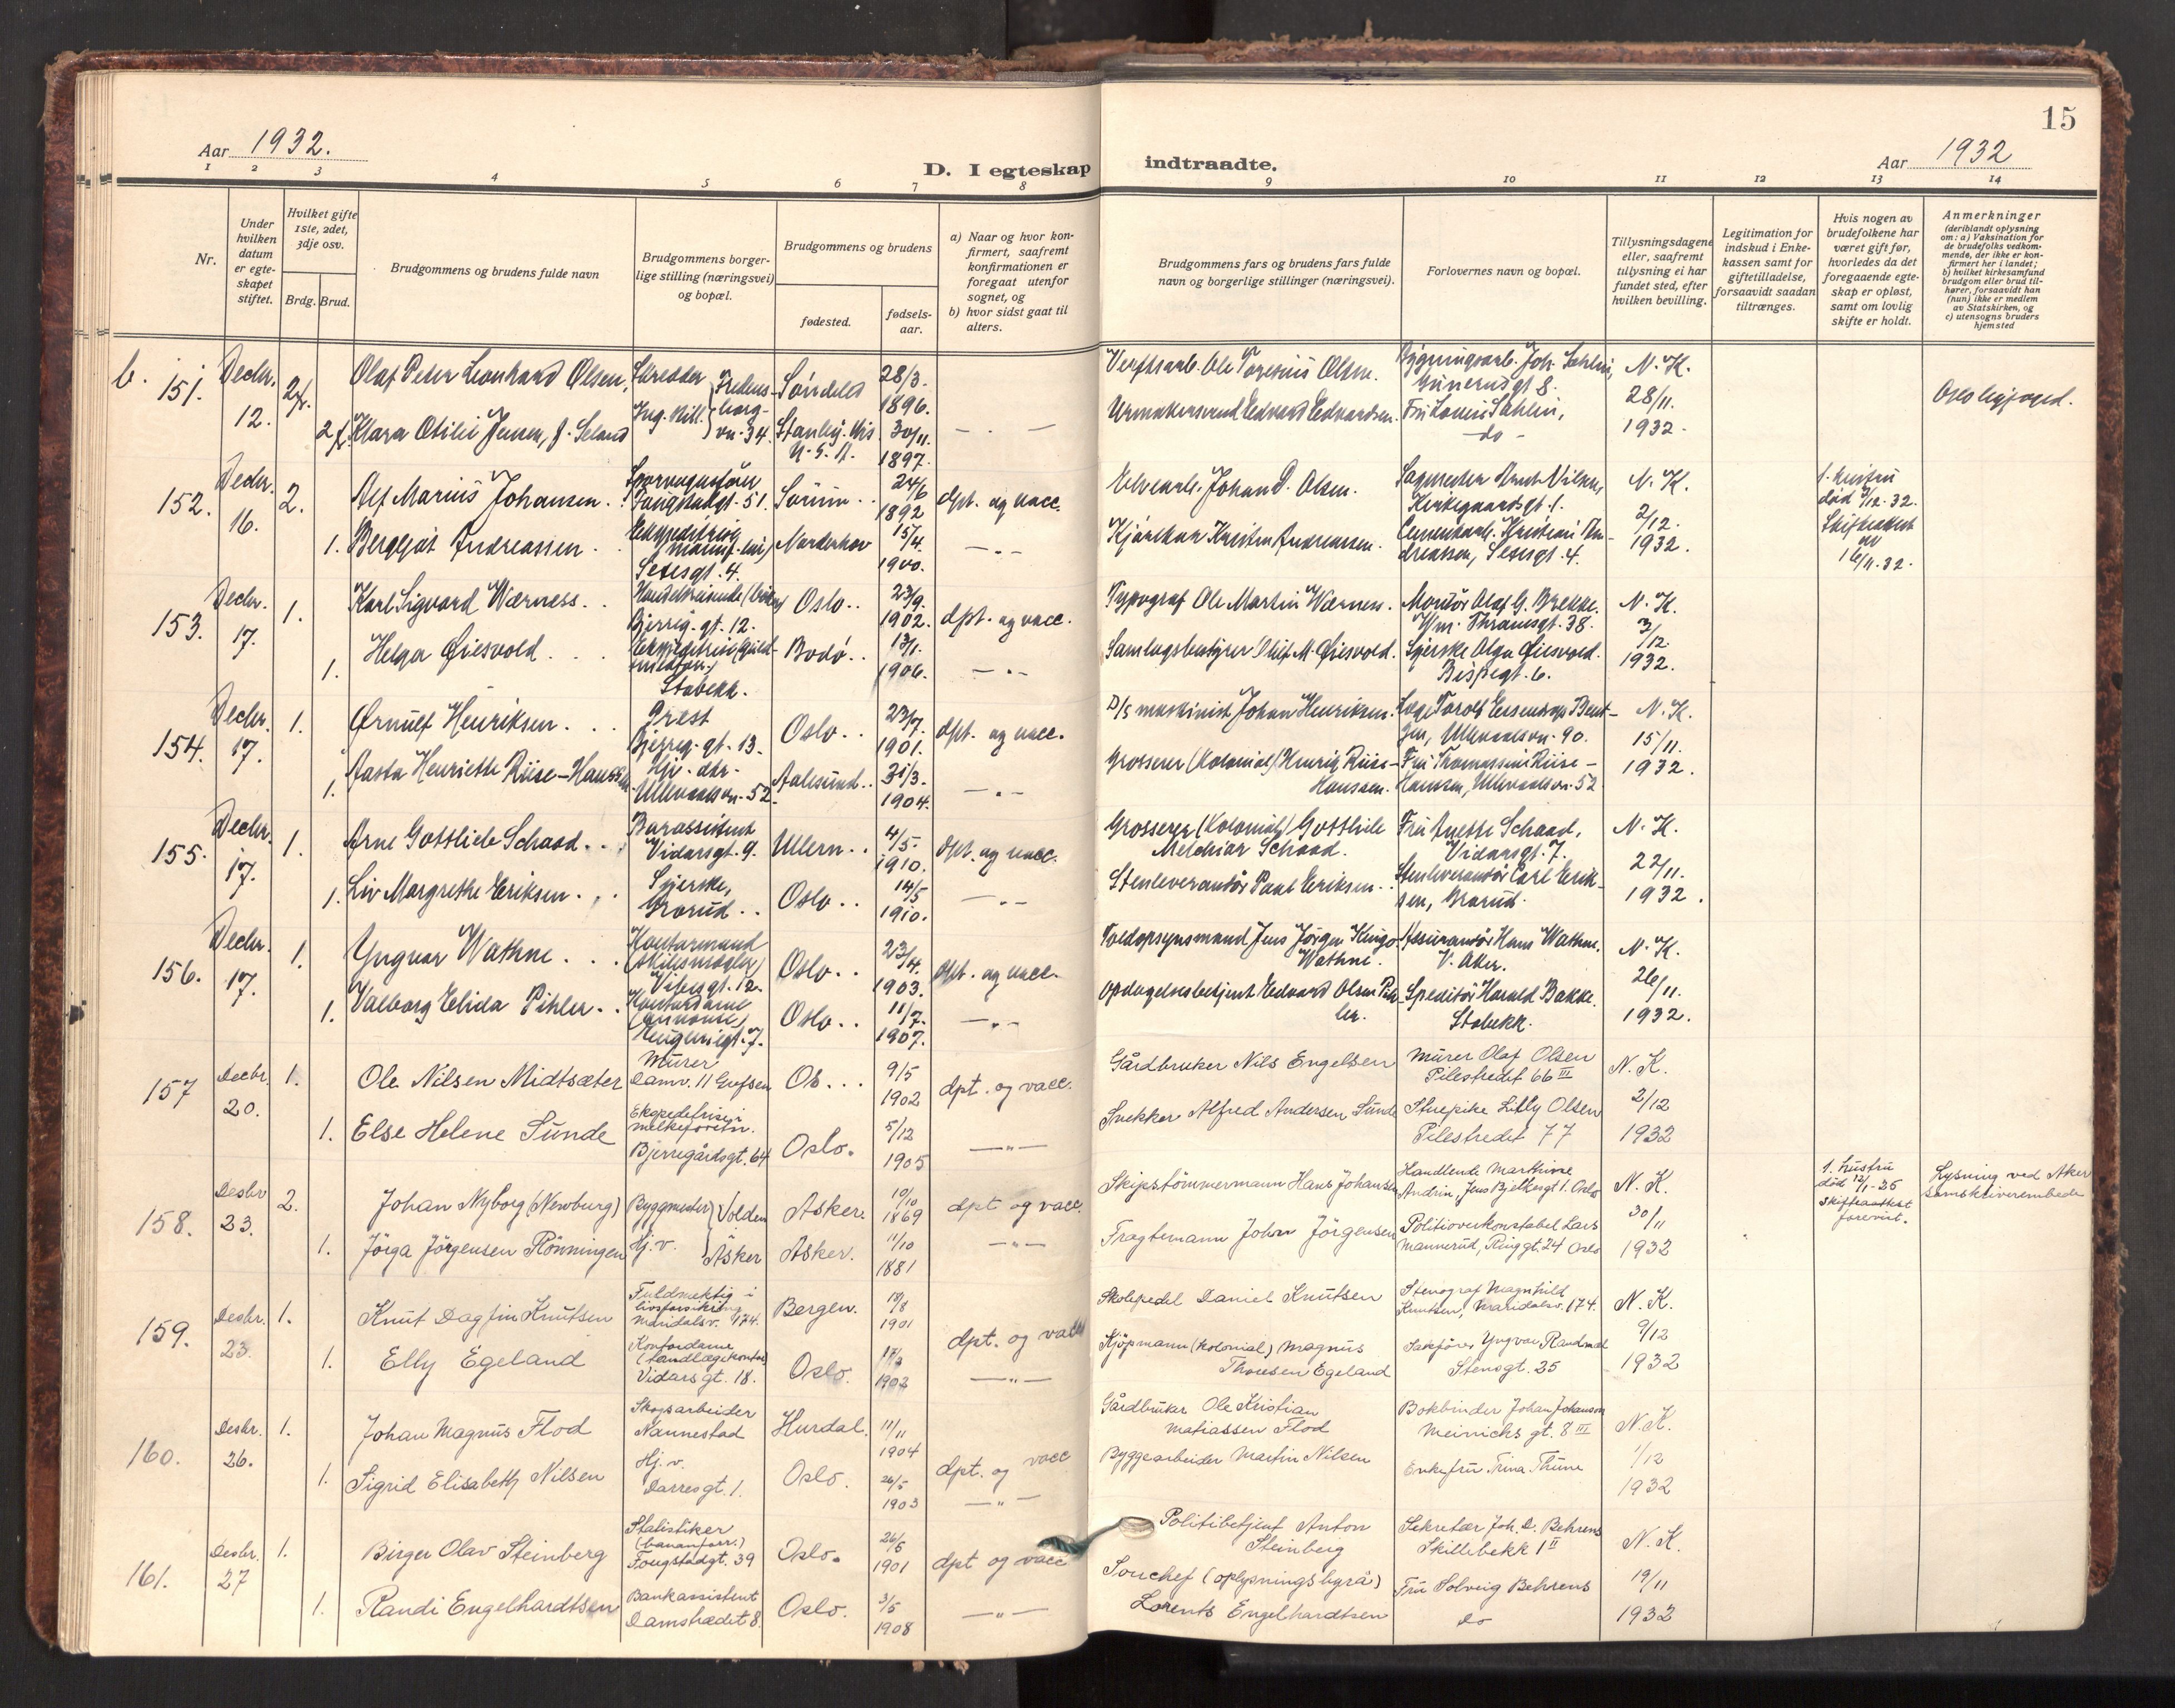 15
Aar 1932.
D. I egteskap indtraadte.
Aar 1932
1 2 3 4 5 6 7 8 9 10 11 12 13 14
Nr.
Under hvilken datum er egteskapet stiftet.
Hvilket gifte 1ste, 2det, 3dje osv.
Brdg. Brud.
Brudgommens og brudens fulde navn
Brudgommens borgerlige stilling (næringsvei) og bopæl.
Brudgommens og brudens
fødested.
fødselsaar.
a) Naar og hvor konfirmert, saafremt konfirmationen er foregaat utenfor sognet, og
b) hvor sidst gaat til alters.
Brudgommens fars og brudens fars fulde navn og borgerlige stillinger (næringsvei).
Forlovernes navn og bopæl.
Tillysningsdagene eller, saafremt tillysning ei har fundet sted, efter hvilken bevilling.
Legitimation for indskud i Enkekassen samt for giftetilladelse, forsaavidt saadan tiltrænges.
Hvis nogen av brudefolkene har været gift før, hvorledes da det foregaaende egteskap er opløst, samt om lovlig skifte er holdt.
Anmerkninger
(deriblandt oplysning om: a) Vaksination for de brudefolks vedkommende, der ikke er konfirmert her i landet;
b) hvilket kirkesamfund brudgom eller brud tilhører, forsaavidt han (hun) ikke er medlem av Statskirken, og
c) utensogns bruders hjemsted
b. 151. Decbr. 12. 2 f. Olaf Peter Leonhard Olsen, Skredder Søndeled 28/3. 1896. Verftsarb. Ole Toresius Olsen. Bygningsarb. Joh. Sahlin, Grünersgt 8. N.K. 28/11. 1932.
2 f. Klara Otilie Jensen, f. Seland vn. 34. Stanley. Wis. U.S.A. 30/11. 1897. Urmakersvend Edvard Edvardsen. Fru Lovise Sahlin, do
152. Decbr. 16. 2. Alf Marius Johansen. Fougstadgt. 51. Sørum 24/6 1892 dpt. og vacc. Elvearb. Johan D. Olsen. Kirkegaardsgt. 1. N.K. 2/12. 1932.
1. hustru død
1. Bergljot Andreassen Setesgt. 4. Norderhov 15/4. 1900. Kjørekar Kristen Andreassen. Cementarb. Kristian Andreassen, Setesgt. 4.
153. Decbr. 17. 1. Karl Sigvard Wærness. Bjerreg. gt. 12. Oslo 23/9. 1902. dpt. og vacc. Typograf Ole Martin Wærness. Montør Olaf G. Brekke. Wm. Thranesgt. 38. N.K. 3/12 1932.
1. Helga Øiesvold Stabekk. Bodø 13/1. 1906. Samlagsbestyrer Oluf M. Øiesvold. Syerske Olga Øiesvold. Bispegt. 6.
154. Decbr. 17. 1. Ørnulf Henriksen. Prest Bjerreg. gt. 13. Oslo 23/7. 1901. dpt. og vacc. D/S maskinist Johan Henriksen. Ullevaalsvn. 90. N.K. 15/11. 1932.
1. Aasta Henriette Riise-Hanssen Hj. dtr. Ullevaalsvn. 52. Aalesund 31/3. 1904. Grosserer (Kolonial) Henrig Riise-Hanssen. Fru Thomassine Riise-Hanssen, Ullevaalsvn. 52
155. Decbr. 17. 1. Arne Gottlieb Schaad. Vidarsgt. 9. Ullern 4/5. 1910. dpt. og vacc. Grosserer (Kolonial) Gottlieb Melchior Schaad. Fru Anette Schaad, Vidarsgt. 7. N.K. 22/11. 1932.
1. Liv Margrethe Eriksen. Syerske, Grorud Oslo 14/5 1910. Stenleverandør Paul Eriksen. Stenleverandør Carl Eriksen, Grorud.
156. Decbr. 17. 1. Yngvar Wathne. Kontormand (skibsmægler) Vibesgt. 12. Oslo 23/4. 1903. dpt. og vacc. Toldopsynsmand Jens Jørgen Kingo Wathne. Assurandør Hans Wathne. V. Aker. N.K. 26/11. 1932.
1. Valborg Elida Pihler. Kontordame (annonce) Heugluinsgt. 7. Oslo 11/7. 1907. Opdagelsesbetjent Edvard Olsen Pihler. Speditør Harald Bakke. Stabekk.
157 Decbr. 20. 1. Ole Nilsen Midtsæter Murer Damv. 11 Grefsen Os. 9/5 1902 dpt. og vacc. Gårdbruker Nils Engelsen Murer Olaf Olsen Pilestredet 66 III N.K. 2/12 1932
1. Else Helene Sunde Ekspedetrise i melkeforretn. Bjerregårdsgt. 64 Oslo. 5/12 1905 Snekker Alfred Andersen Sunde Stuepike Lilly Olsen Pilestredet 77
158. Desbr 23. 2. Johan Nyborg (Newburg) Byggmester Volden Asker. 10/10 1869 dpt og vacc. Skipstömmermann Hans Johansen Handlende Martinse Andrin, Jens Bjelkesgt 1. Oslo N.K. 30/11 1932
1. hustru død 12/1-25 skifteattest forevist.
Lysning ved Aker sorenskriverembede
1. Jörga Jörgensen Rönningen Hj.v. Asker Asker. 11/10 1881 Fragtemann Johan Jörgensen Politioverkonstabel Lars Mannerud, Ringgt. 24 Oslo
159. Desbr. 23. 1. Knut Dagfin Knutsen Fuldmektig i livsforsikring Maridalsv. 174. Bergen. 18/8 1901 dpt. og vacc Skolepedel Daniel Knutsen Stenograf Magnhild Knutsen, Maridalsv. 174. N.K. 9/12 1932
1. Elly Egeland Kontordame (tandlægekontor) Vidarsgt. 18. Oslo. Kjøpmann (kolonial) Magnus Thorsen Egeland Sakfører Yngvar Randmæl Stensgt. 25
160. Desbr. 26. 1. Johan Magnus Flod Skogsarbeider Nannestad Hurdal. 11/11 1904 dpt. og vacc Gårdbruker Ole Kristian Matiassen Flod Bokbinder Johan Johanson Meinichs gt. 8 III N.K. 1/12 1932
1. Sigrid Elisabeth Nilsen Hj.v. Darresgt. 1. Oslo. 26/5 1903 Byggearbeider Martin Nilsen Enkefru Trina Thune
161. Desbr. 27 1. Birger Olav Steinberg Statistiker (bananforr.) Fougstadgt. 39 Oslo. 26/5 1901 dpt og vacc Politibetjent Anton Steinberg Sekretær Joh. D. Behrens Skillebekk 1 II N.K. 19/11 1932
1. Randi Engelhardtsen Bankassistent Damstrædet 8. Oslo. 3/5 1908 Souchef (oplysningsbyrå) Lorents Engelhardtsen Fru Solveig Behrens do